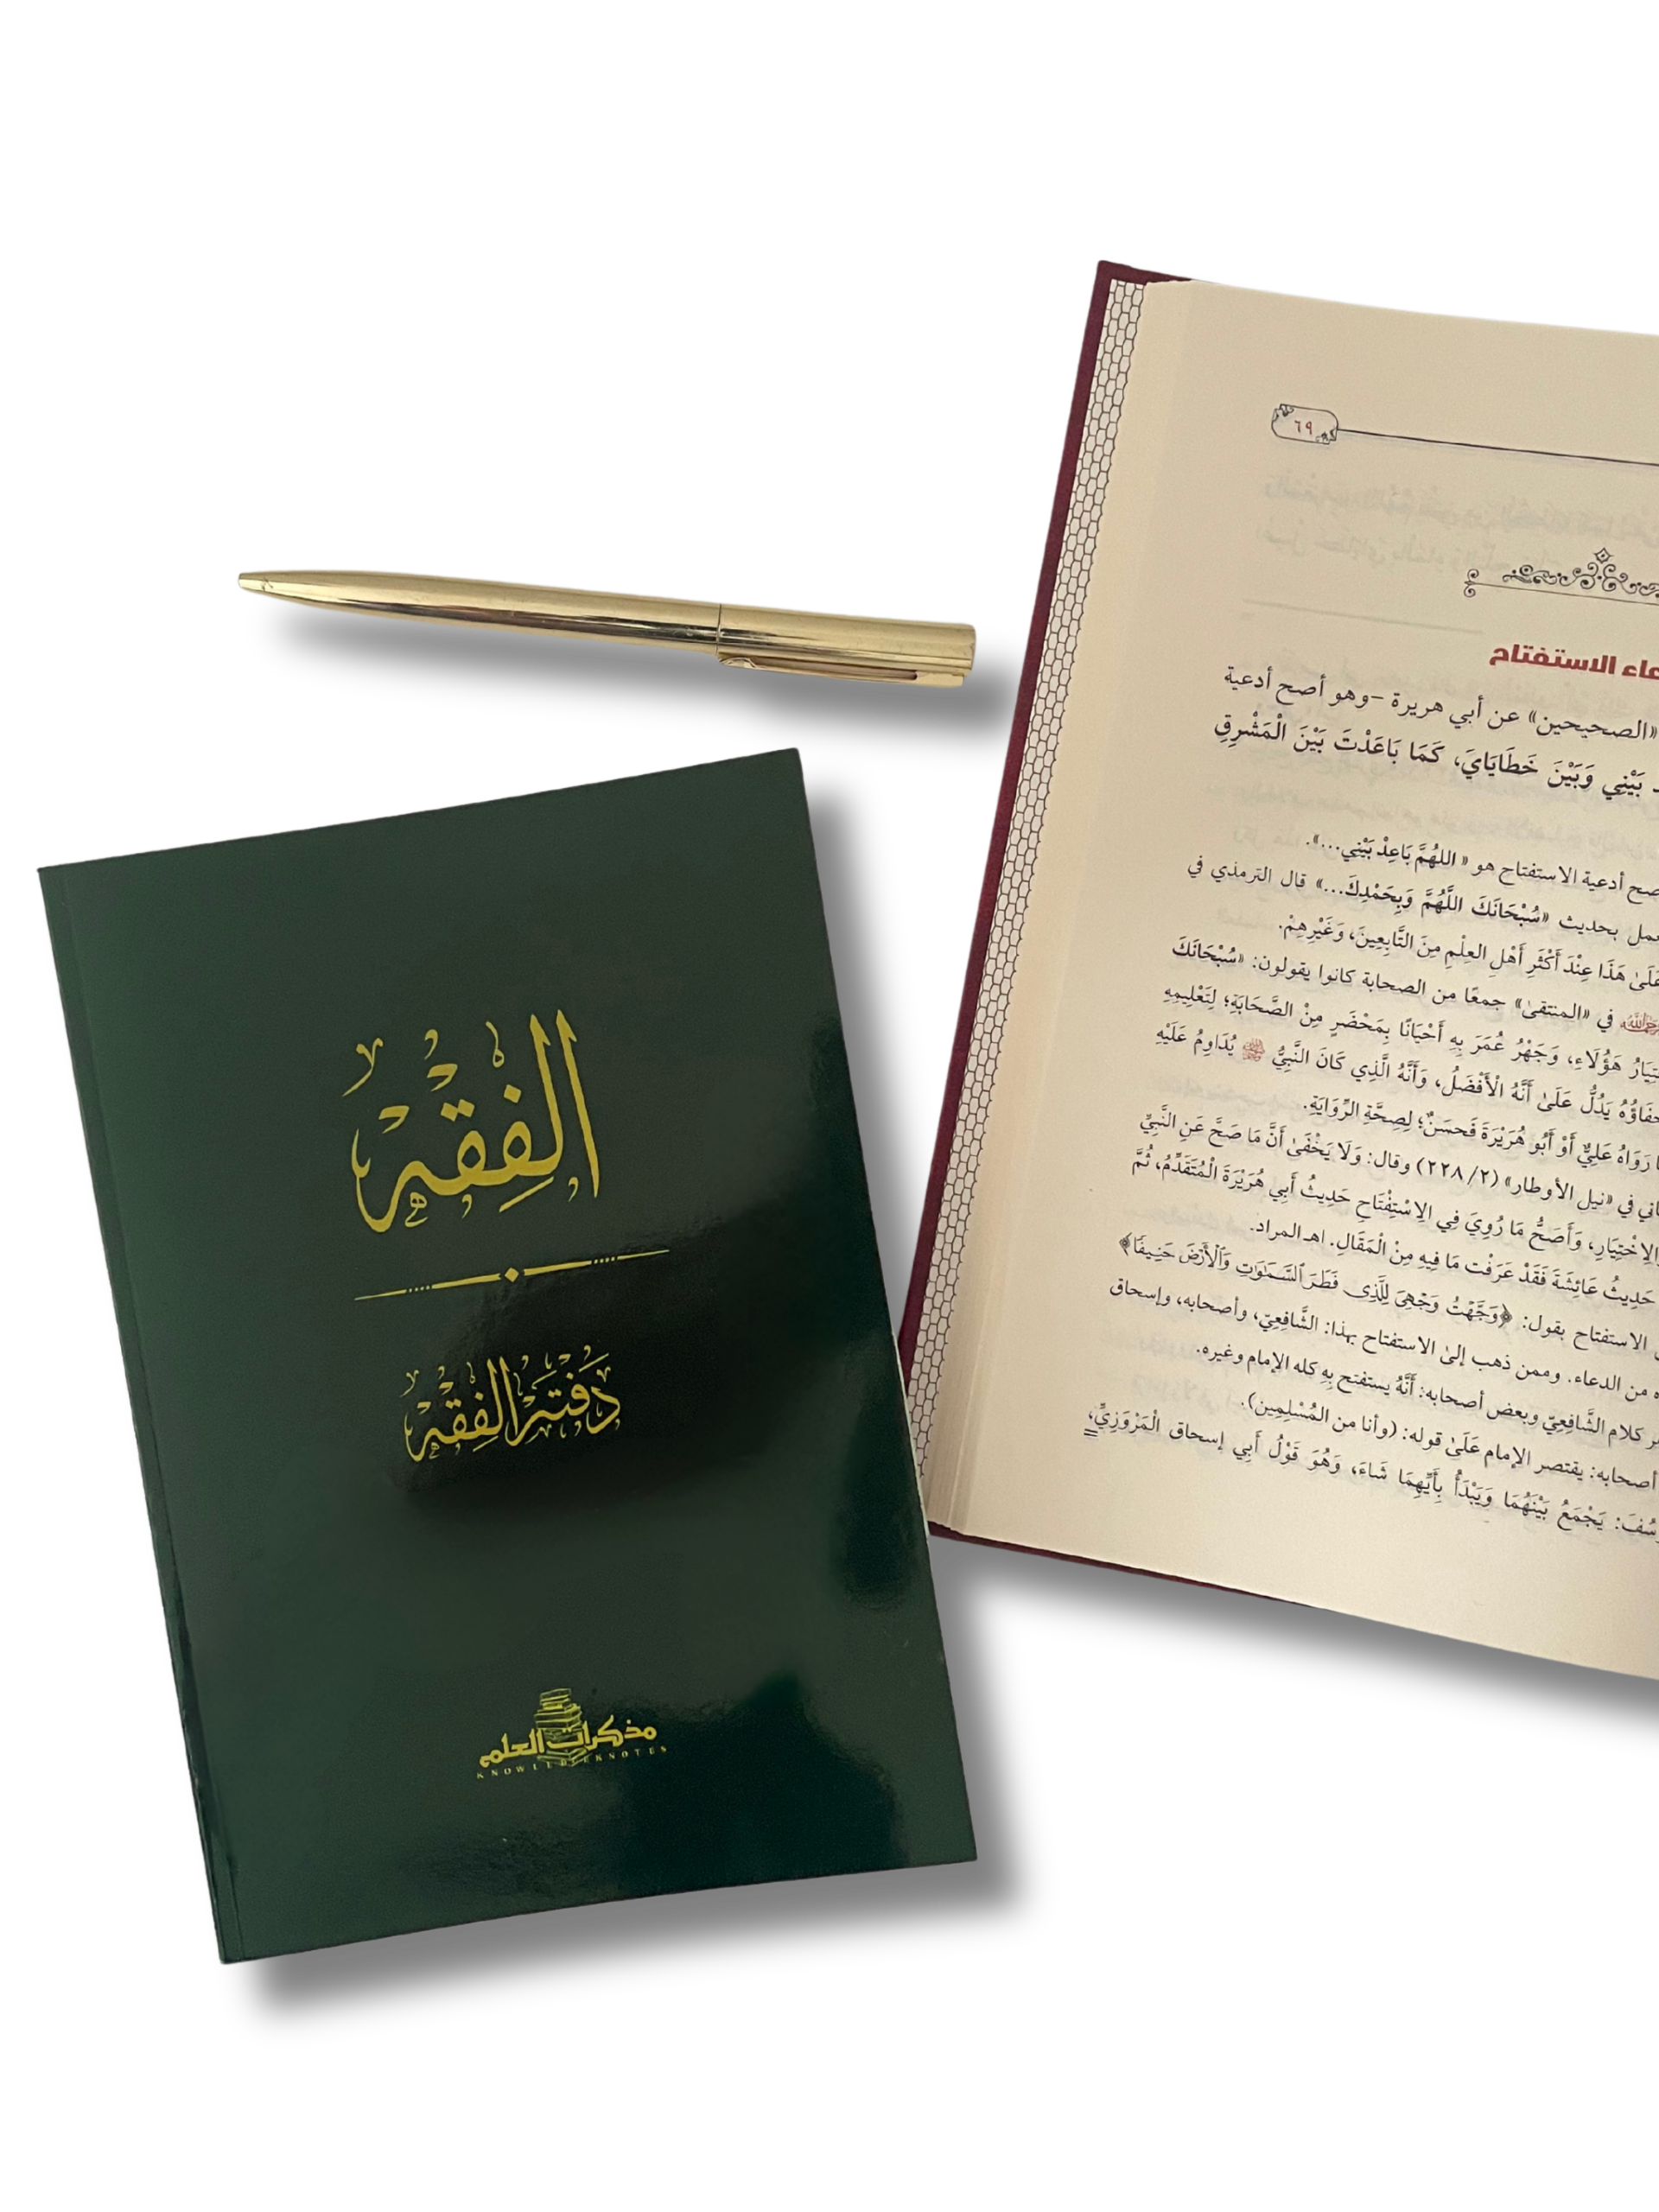 الفِقْه
دَفْتَر الفِقْه
مذكرات العلم
KNOWLEDGEKNOTES
٦٩
اء الاستفتاح
«الصحيحين» عن أبي هريرة -وهو أصح أدعية
بَيْنِي وَبَيْنَ خَطَايَايَ، كَمَا بَاعَدْتَ بَيْنَ الْمَشْرِقِ
صح أدعية الاستفتاح هو «اللهُمَّ بَاعِدْ بَيْنِي...».
عمل بحديث «سُبْحَانَكَ اللَّهُمَّ وَبِحَمْدِكَ...» قال الترمذي في
عَلَىٰ هَذَا عِنْدَ أَكْثَرِ أَهْلِ العِلْمِ مِنَ التَّابِعِينَ، وَغَيْرِهِمْ.
رَحِمَهُ اللهُ في «المنتقىٰ» جمعًا من الصحابة كانوا يقولون: «سُبْحَانَكَ
تِيَارُ هَؤُلَاءِ، وَجَهْرُ عُمَرَ بِهِ أَحْيَانًا بِمَحْضَرٍ مِنْ الصَّحَابَةِ؛ لِتَعْلِيمِهِ
خفَاؤُهُ يَدُلُّ عَلَىٰ أَنَّهُ الْأَفْضَلُ، وَأَنَّهُ الَّذِي كَانَ النَّبِيُّ ﷺ يُدَاوِمُ عَلَيْهِ
ا رَوَاهُ عَلِيٌّ أَوْ أَبُو هُرَيْرَةَ فَحَسَنٌ؛ لِصِحَّةِ الرِّوَايَةِ.
اني في «نيل الأوطار» (٢/ ٢٢٨) وقال: وَلَا يَخْفَىٰ أَنَّ مَا صَحَّ عَنِ النَّبِيِّ
وَالِاخْتِيَارِ، وَأَصَحُّ مَا رُوِيَ فِي الِاسْتِفْتَاحِ حَدِيثُ أَبِي هُرَيْرَةَ الْمُتَقَدِّمُ، ثُمَّ
حَدِيثُ عَائِشَةَ فَقَدْ عَرَفْت مَا فِيهِ مِنْ الْمَقَالِ. اهـ المراد.
الاستفتاح بقول: ﴿وَجَّهْتُ وَجْهِيَ لِلَّذِي فَطَرَ ٱلسَّمَٰوَٰتِ وَٱلْأَرْضَ حَنِيفًا﴾
ه من الدعاء. وممن ذهب إلىٰ الاستفتاح بهذا: الشَّافِعِيّ، وأصحابه، وإسحاق
ر كلام الشَّافِعِيّ وبعض أصحابه: أَنَّهُ يستفتح بِهِ كله الإمام وغيره.
أصحابه: يقتصر الإمام عَلَىٰ قوله: (وأنا من المُسْلِمِين).
وسُفَ: يَجْمَعُ بَيْنَهُمَا وَيَبْدَأُ بِأَيِّهِمَا شَاءَ، وَهُوَ قَوْلُ أَبِي إسحاق الْمَرْوَزِيِّ،